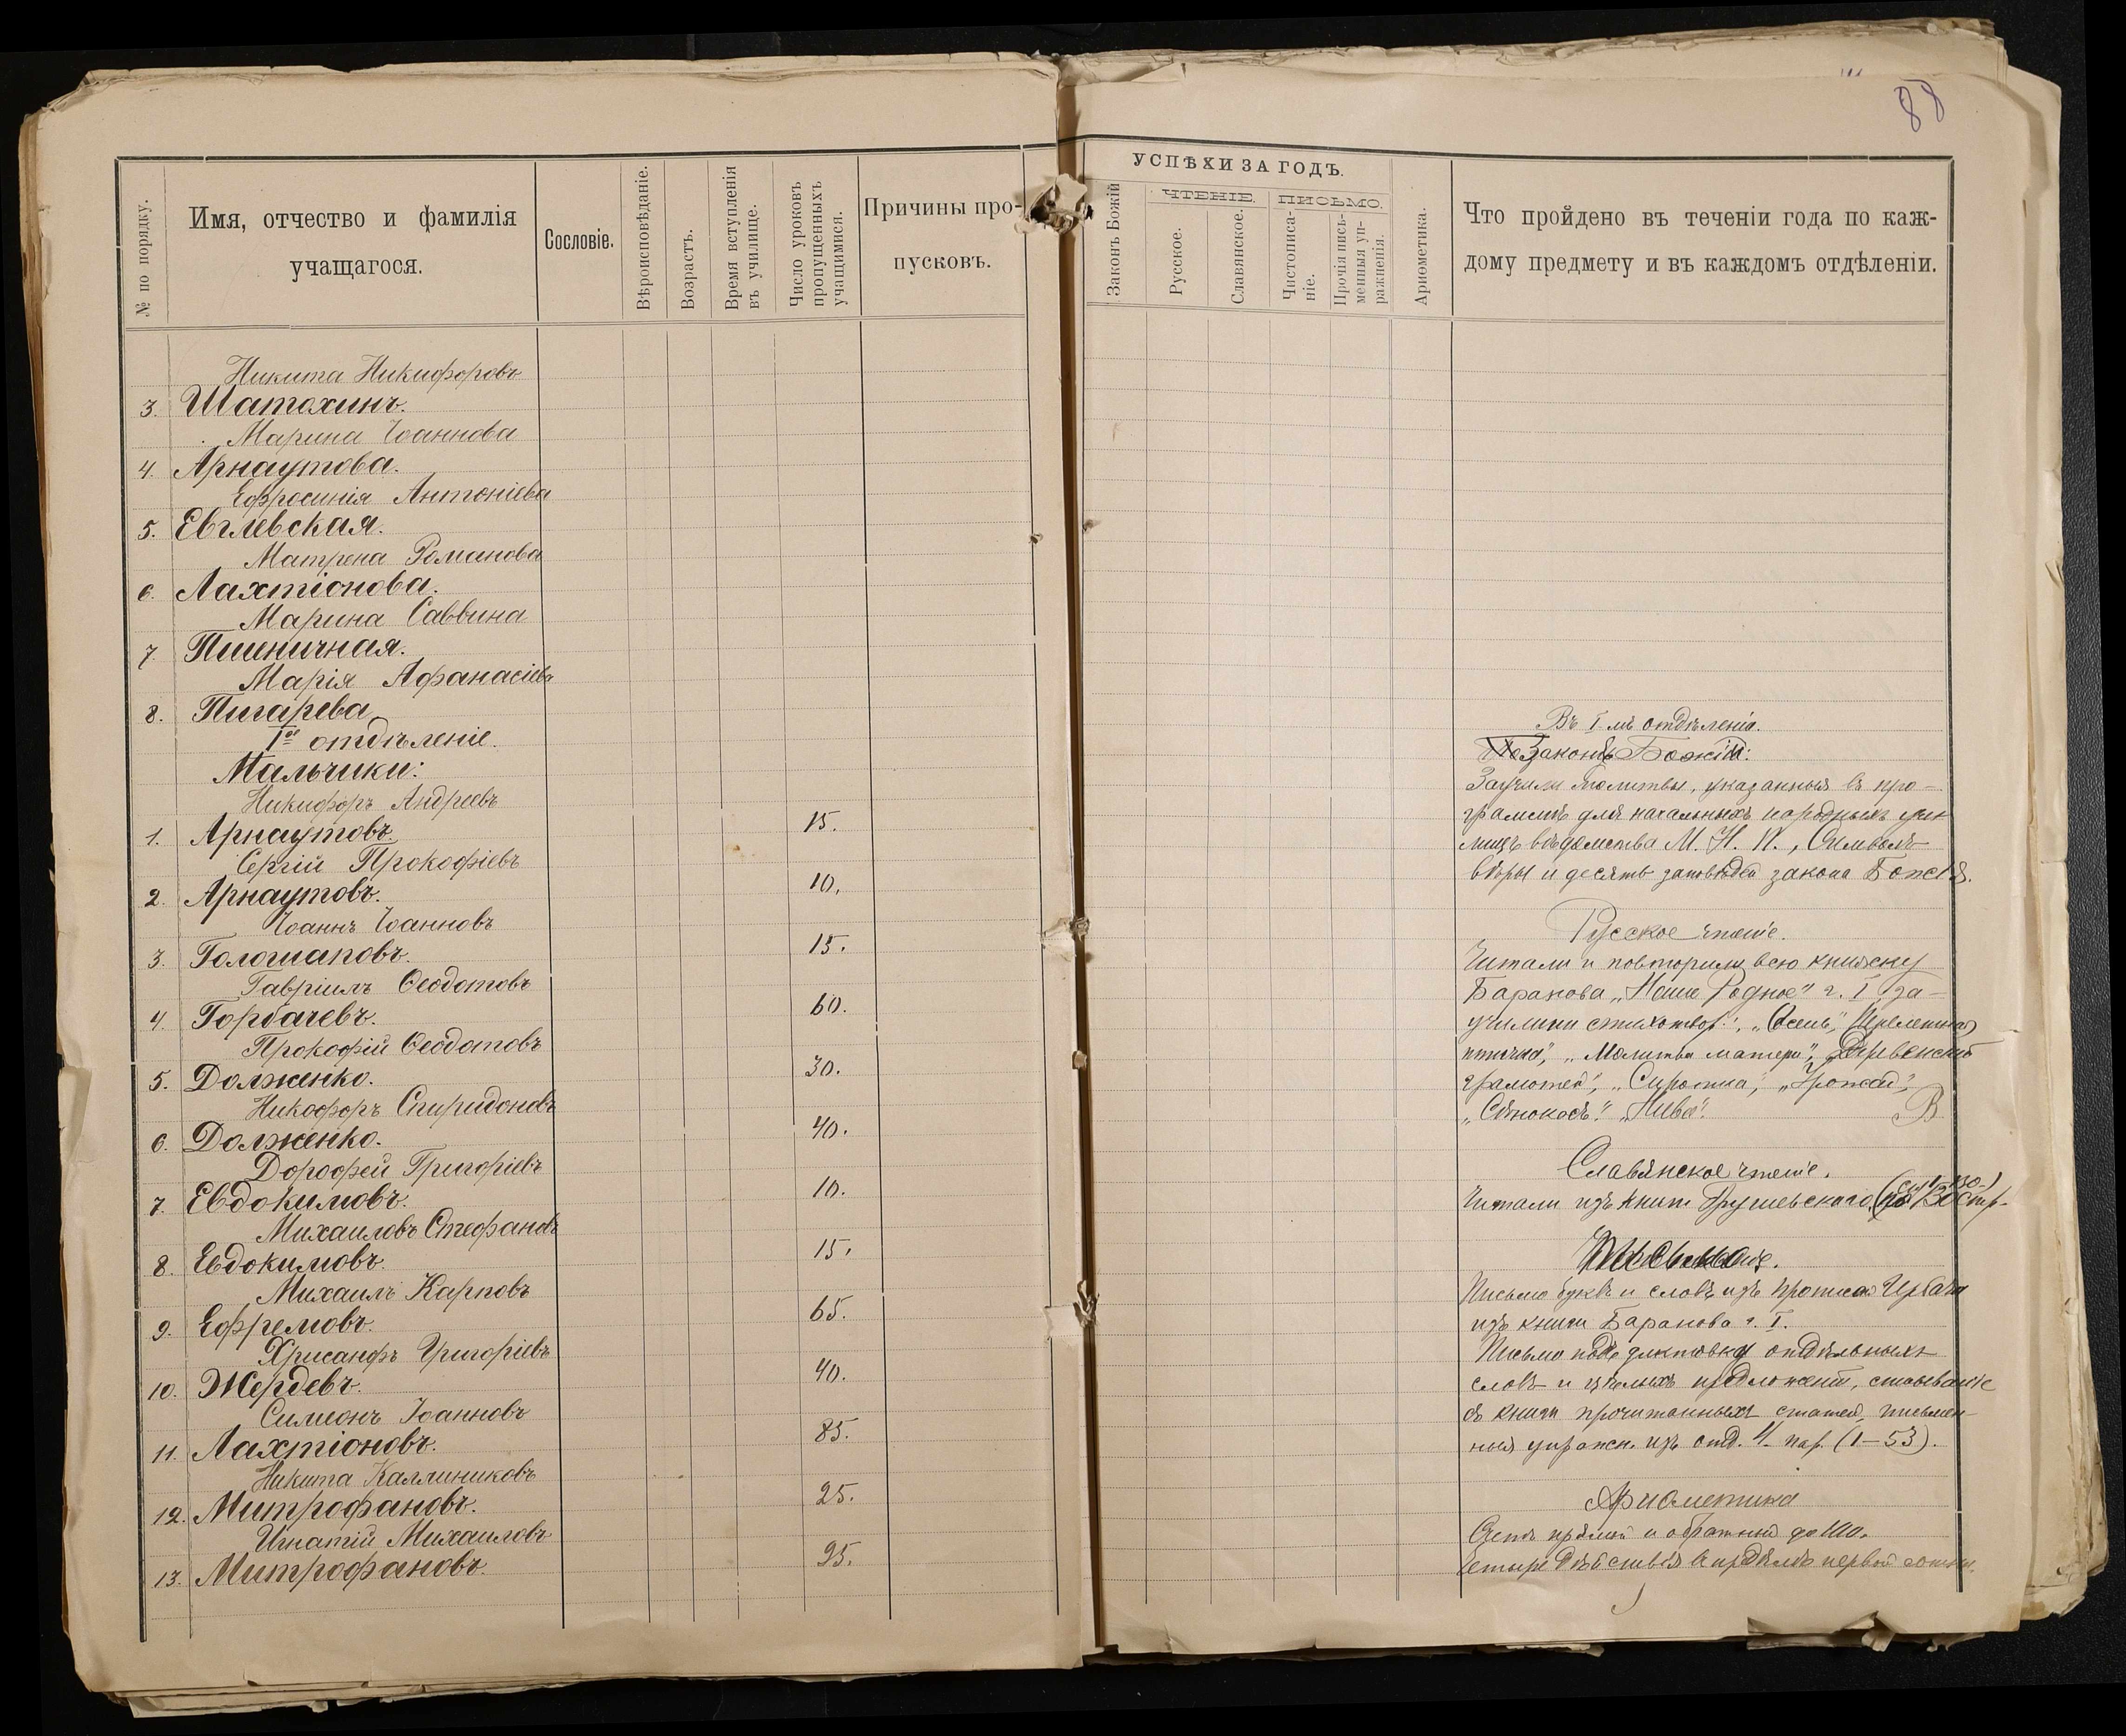 88
№ по порядку.
Имя, отчество и фамилія
учащагося.
Сословіе.
Вѣроисповѣданіе.
Возрастъ.
Время вступленія
въ училище.
Число уроковъ
пропущенныхъ
учащимися.
Причины про-
пусковъ.
УСПѢХИ ЗА ГОДЪ.
Законъ Божій
ЧТЕНІЕ.
Русское.
Славянское.
ПИСЬМО.
Чистописа-
ніе.
Прочія пись-
менныя уп-
ражненія.
Ариѳметика.
Что пройдено въ теченіи года по каж-
дому предмету и въ каждомъ отдѣленіи.
Никита Никифоровъ
3. Шатохинъ.
Марина Іоаннова
4. Арнаутова.
Ефросинія Антоніева
5. Евглевская.
Матрена Романова
6. Лахтіонова.
Марина Саввина
7. Пшеничная.
Марія Афанасіева
8. Пигарева
Iое отдѣленіе.
Мальчики:
Никифоръ Андреевъ
1. Арнаутовъ. 15.
Сергій Прокофіевъ
2. Арнаутовъ. 10.
Іоаннъ Іоанновъ
3. Голошаповъ. 15.
Гавріилъ Ѳеодотовъ
4. Горбачевъ. 60.
Прокофій Ѳеодотовъ
5. Долженко. 30.
Никофоръ Спиридоновъ
6. Долженко. 40.
Дорофей Григоріевъ
7. Евдокимовъ. 10.
Михаиловъ Стефановъ
8. Евдокимовъ. 15.
Михаилъ Карповъ
9. Ефремовъ. 65.
Хрисанфъ Григоріевъ
10. Жердевъ. 40.
Симеонъ Іоанновъ
11. Лахтіоновъ. 85.
Никита Каллиниковъ
12. Митрофановъ. 25.
Игнатій Михаиловъ
13. Митрофановъ. 95.
Въ I мъ отдѣленіи.
Законъ Божій:
Заучили молитвы, указанныя въ про-
граммѣ для начальныхъ народныхъ учи
лищъ вѣдомства М. Н. П., Символъ
вѣры и десять заповѣдей закона Божія.
Русское чтеніе.
Читали и повторили всю книжку
Баранова „Наше Родное" ч. I за-
учили стихотвор.: „Осень", Перелетная
птичка", „Молитва матери", „Деревенскій
грамотей", „Сиротка", „Урожай",
„Сѣнокосъ." „Нива".
Славянское чтеніе.
Читали изъ книги Грушевскаго стр.
Письмо буквъ и словъ изъ прописи Гербача
изъ книги Баранова ч. I.
Письмо подъ диктовку отдѣльныхъ
словъ и цѣлыхъ предложеній, списываніе
съ книги прочитанныхъ статей, письмен-
ныя упражн. изъ отд. пар. (1–53).
Ариѳметика
Счетъ прямой и обратный до 100.
Четыре дѣйствія въ предѣлѣ первой сотни.